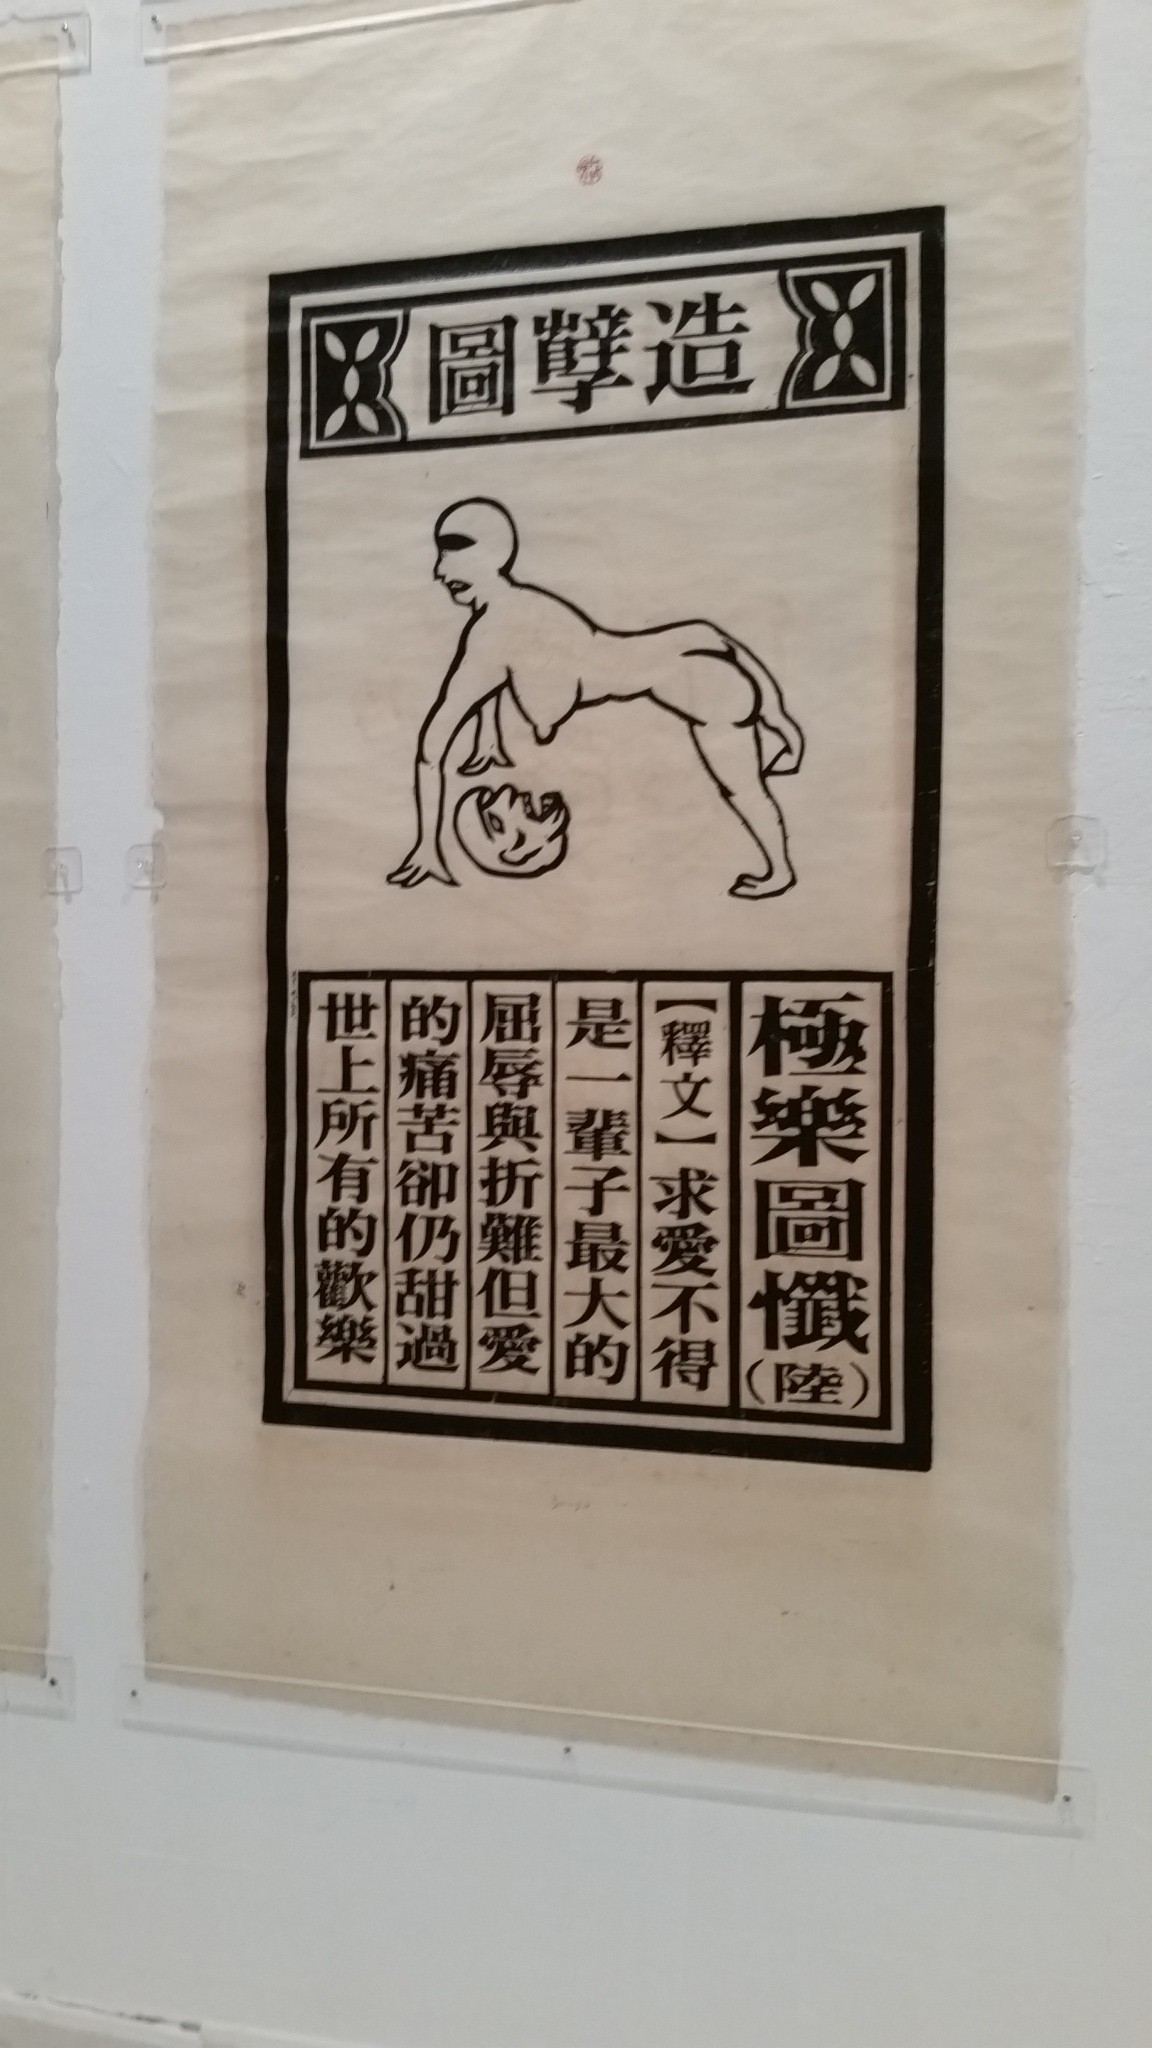 造孽圖
極樂圖懺(陸)
【釋文】求愛不得
是一輩子最大的
屈辱與折難但愛
的痛苦卻仍甜過
世上所有的歡樂